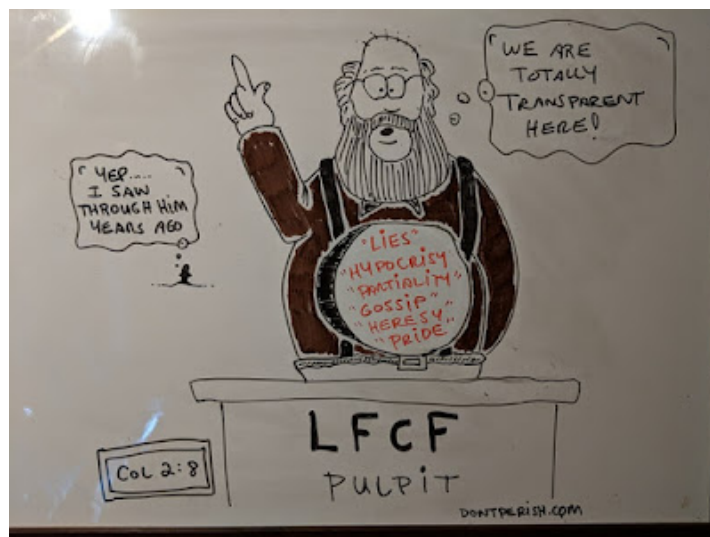 "WE ARE
TOTALLY
TRANSPARENT
HERE!
"YEP.....
I SAW
THROUGH HIM
YEARS AGO
"LIES"
"HYPOCRISY
"PARTIALITY"
"GOSSIP"
"HERESY"
"PRIDE
LFCF
PULPIT
COL 2:8
DONTPERISH.COM